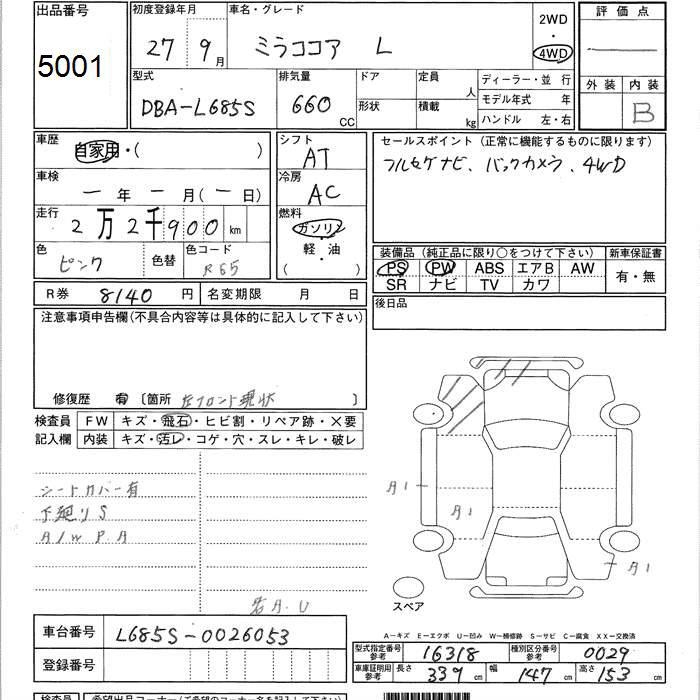 出品番号 初度登録年月 車名・グレード 2WD 評価点
5001 27 9月 ミラココア L ・ 4WD
型式 排気量 ドア 定員 ディーラー・並 行 外装 内装
DBA-L685S 660 CC 形状 積載 人 kg モデル年式 年 B
ハンドル 左・右
車歴 自家用・( ) シフト AT セールスポイント (正常に機能するものに限ります)
車検 一年一月(一日) 冷房 AC フルセグナビ、バックカメラ、4WD
走行 2万2千900km 燃料 ガソリン
軽・油
( )
色 ピンク 色替 色コード R65
装備品 (純正品に限り○をつけて下さい) 新車保証書
PS PW ABS エアB AW 有・無
SR ナビ TV カワ
R券 8140 円 名変期限 月 日 後日品
注意事項申告欄(不具合内容等は具体的に記入して下さい)
修復歴 有 〔箇所 左フロント現状
検査員 FW キズ・飛石・ヒビ割・リペア跡・×要
記入欄 内装 キズ・汚レ・コゲ・穴・スレ・キレ・破レ
シートカバー有
下廻りS
A/W P.A
A1
A1
A1
若A.U
スペア
車台番号 L685S-0026053
A-キズ E-エクボ U-凹み W-補修跡 S-サビ C-腐食 XX-交換済
登録番号
型式指定番号 参考 16318 種別区分番号 参考 0029
車庫証明用 参考 長さ 339 cm 幅 147 cm 高さ 153 cm
検査員 希望出品コーナー(ご希望のコーナー名を記入